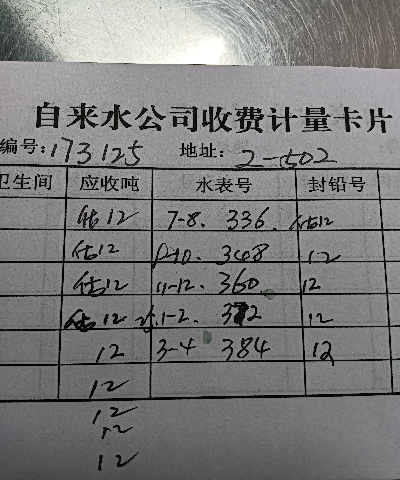 自来水公司收费计量卡片
编号:173125 地址: 2-502
卫生间 应收吨 水表号 封铅号
估12 7-8. 336. 估12
估12 9-10. 348 12
估12 11-12. 360 12
估12 1-2. 372 12
12 3-4 384 12
12
12
12
12